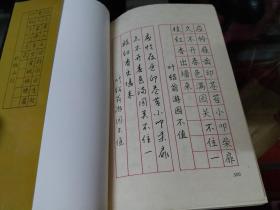 应怜屐齿印苍苔小叩柴扉
久不开春色满园关不住一
枝红杏出墙来
叶绍翁游园不值
应怜屐齿印苍苔小叩柴扉
久不开春色满园关不住一
枝红杏出墙来
叶绍翁游园不值